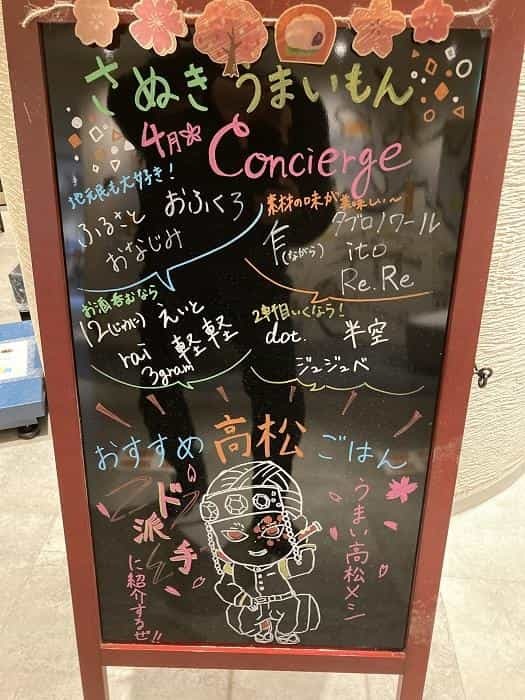 さぬきうまいもん
4月 Concierge
地元民も大好き!
ふるさと おふくろ
おなじみ
素材の味が美味しい〜
(ながら) タブロノワール
ito
Re.Re
お酒呑むなら
12(じゅうに) えいと
rai 軽軽
3gram
2軒目いくなら!
dot. 半空
ジュジュベ
おすすめ高松ごはん
ド派手
に紹介するぜ!!
うまい高松メシ